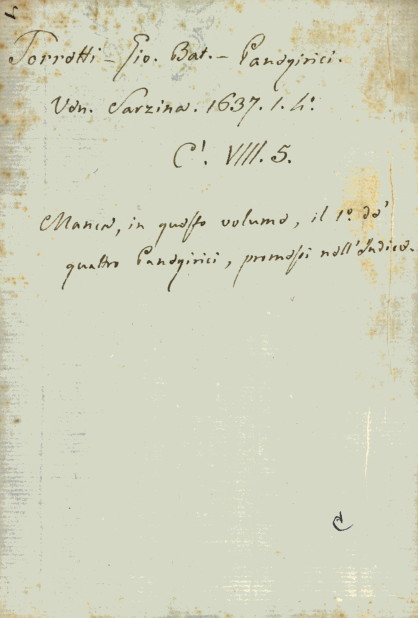 Torretti - Gio. Bat. - Panegirici.
Ven. Sarzina. 1637. 1. 4º
C'. VIII. 5.
Manca, in questo volume, il 1º de'
quattro Panegirici, promessi nell'Indice.